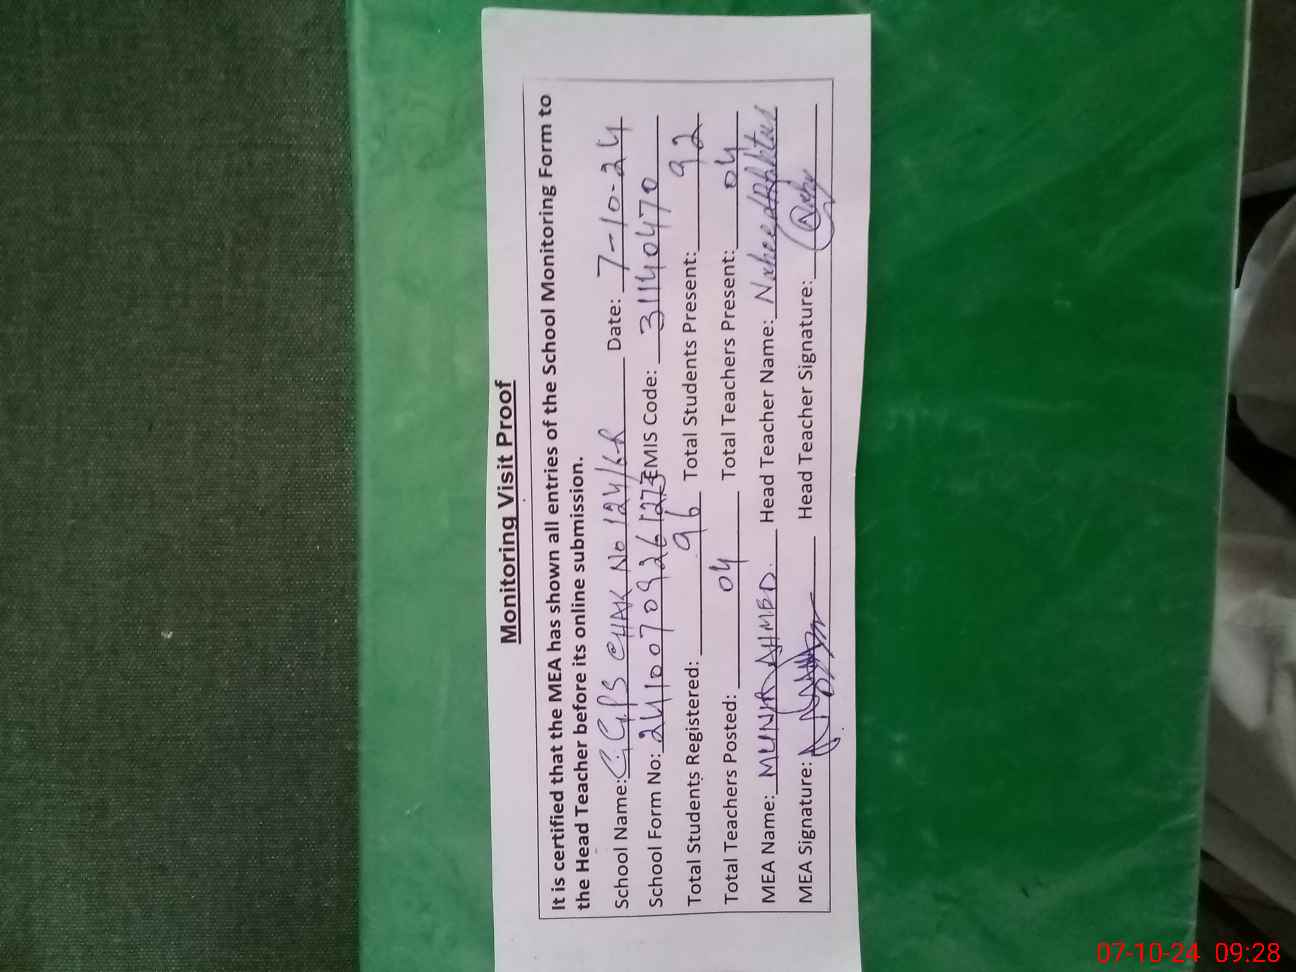 Monitoring Visit Proof
It is certified that the MEA has shown all entries of the School Monitoring Form to
the Head Teacher before its online submission.
School Name: GGPS CHAK No 124/6R Date: 7-10-24
School Form No: 24100709261273 EMIS Code: 31140470
Total Students Registered: 96 Total Students Present: 92
Total Teachers Posted: 04 Total Teachers Present: 04
MEA Name: MUNIR AHMED. Head Teacher Name:
MEA Signature: Head Teacher Signature:
07-10-24 09:28